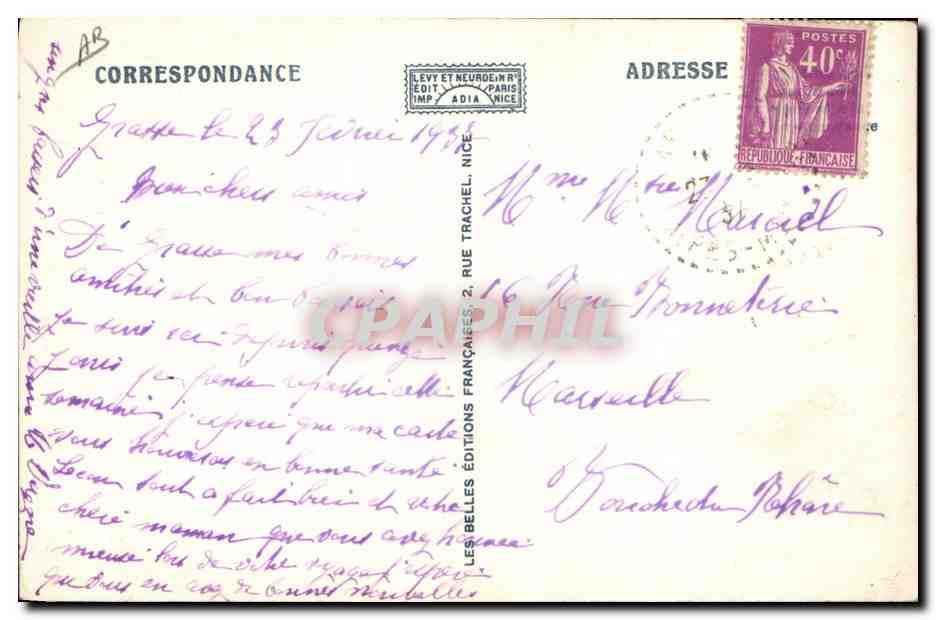 AB
CORRESPONDANCE
LEVY ET NEURDEIN Rs
EDIT PARIS
IMP ADIA NICE
ADRESSE
POSTES
40c
RÉPUBLIQUE FRANÇAISE
Grasse le 23 Février 193
mon chers amis
De Grasse mes bonnes
amitiés et bon baisers
Je suis ici depuis quinze
jours je pense repartir cette
semaine j'espère que ma carte
vous trouvera en bonne santé
Lecon tout a fait bien et votre
chere maman que vous avez
mieuse lors de votre voyage j'espère
que vous en avez de bonnes nouvelles
LES BELLES ÉDITIONS FRANÇAISES, 2, RUE TRACHEL, NICE
Mme Marciel
16 Rue Bonneterie
Marseille
Bouche du Rhône
CPAPHIL